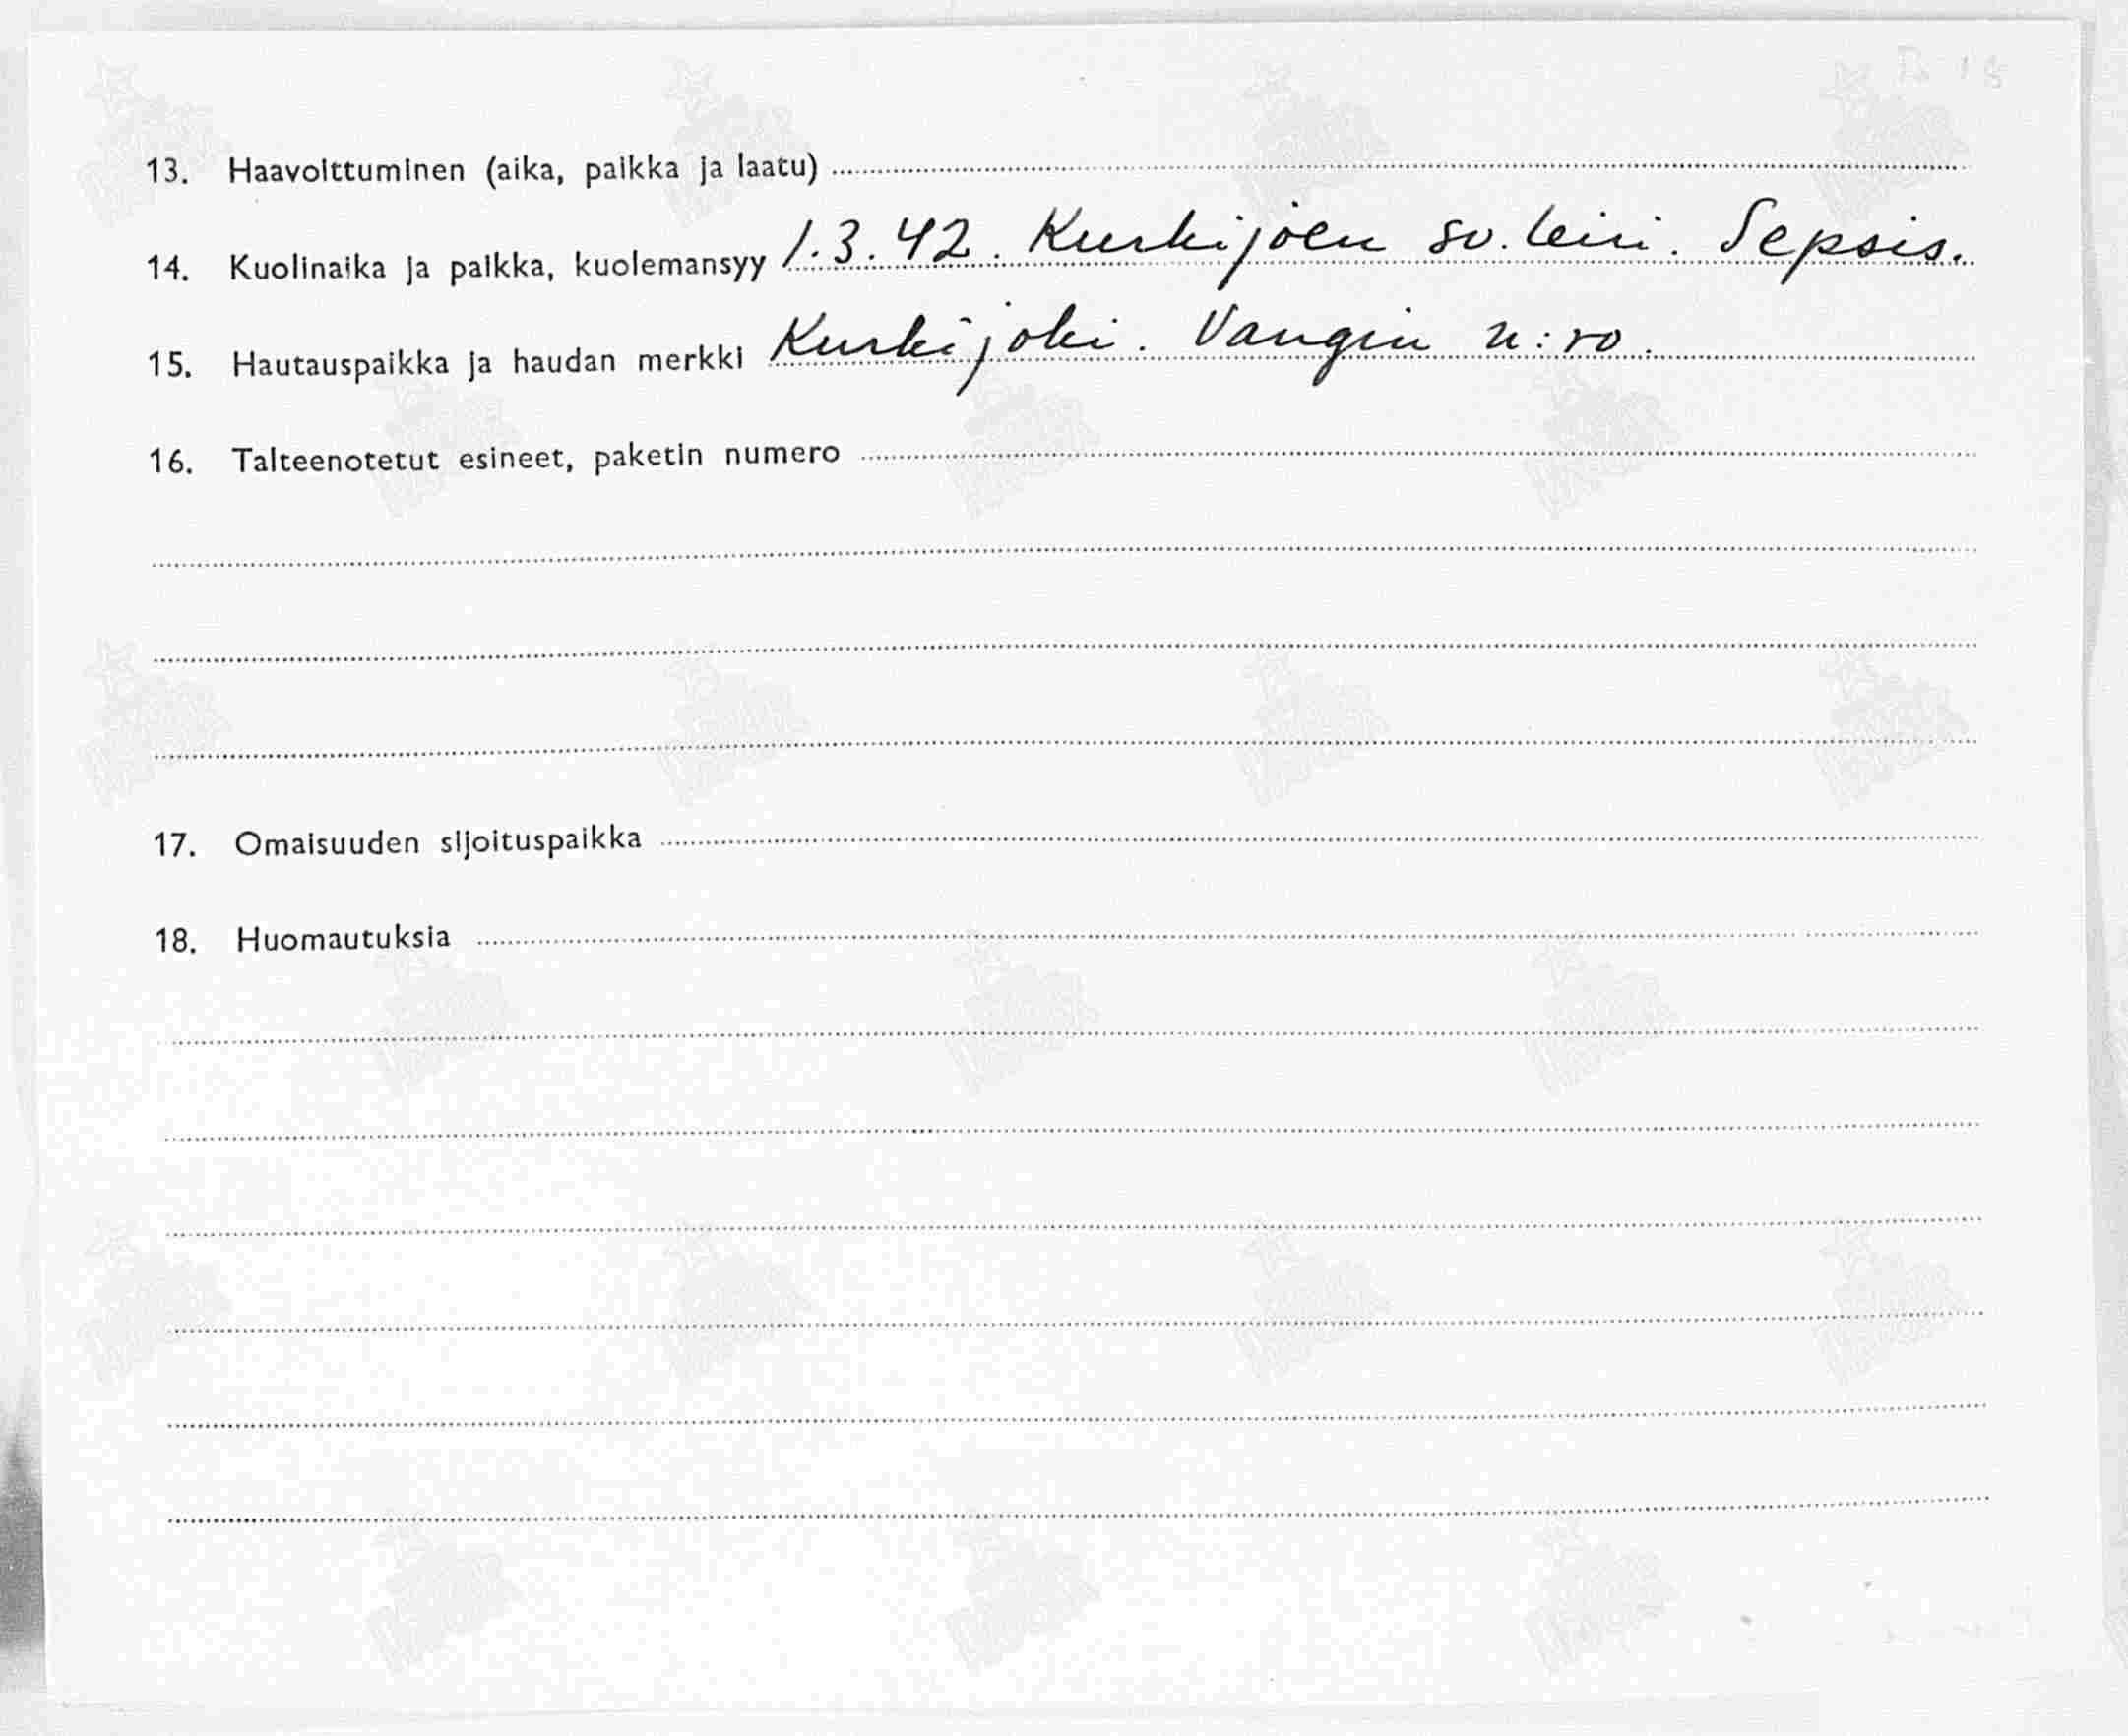 13. Haavoittuminen (aika, paikka ja laatu)
14. Kuolinaika ja paikka, kuolemansyy 1.3.42. Kurkijoen sv. leiri. Sepsis.
15. Hautauspaikka ja haudan merkki Kurkijoki. Vangin n:ro.
16. Talteenotetut esineet, paketin numero
17. Omaisuuden sijoituspaikka
18. Huomautuksia